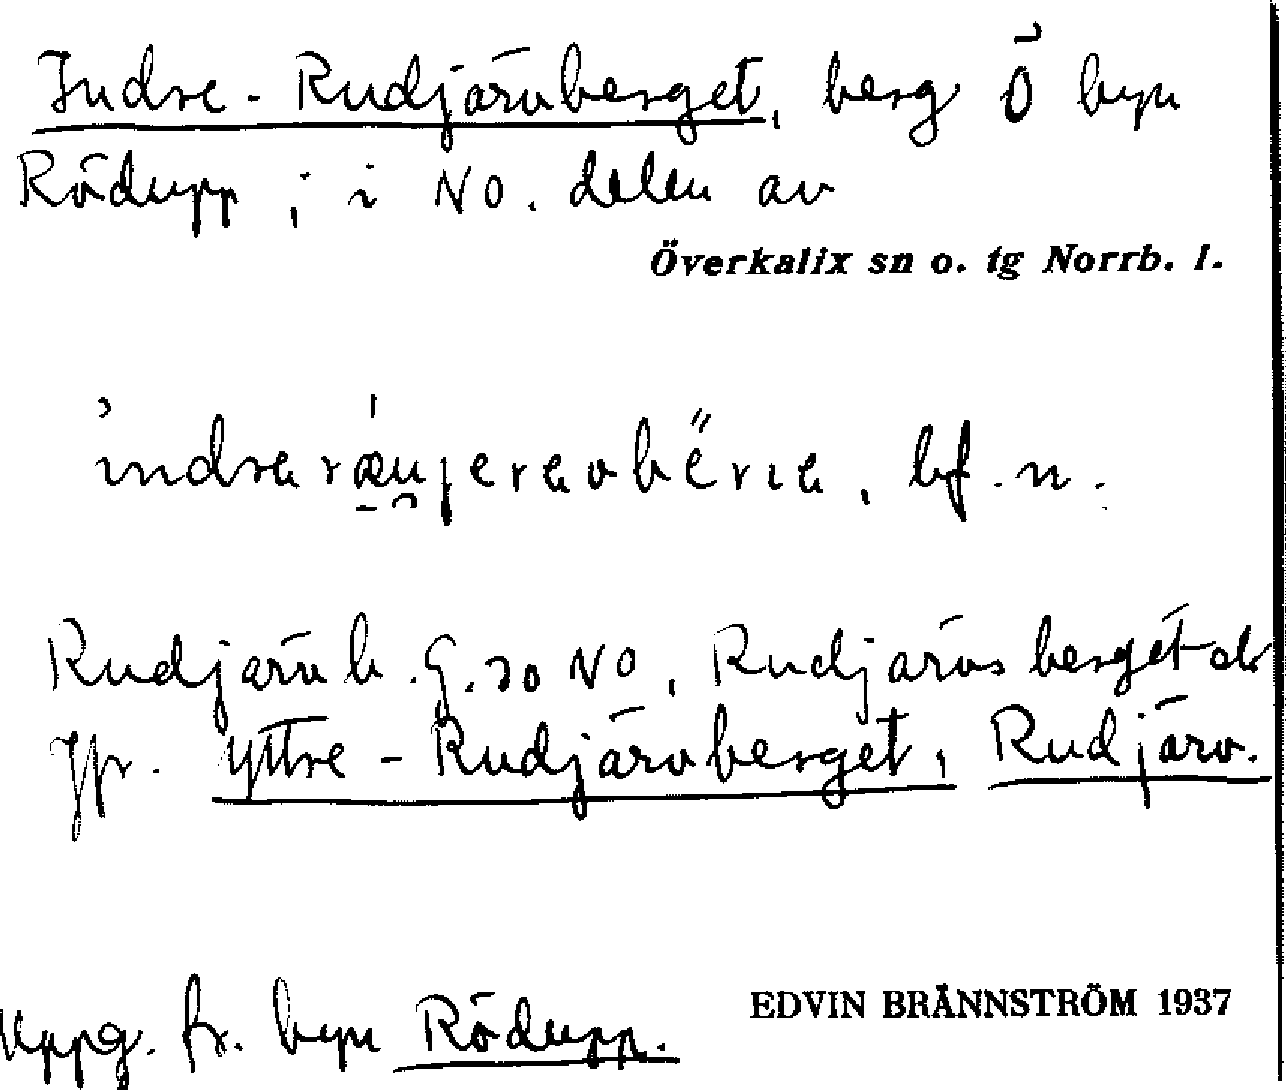 Indre-Rudjärvberget, berg Ö byn
Rödupp ; i NO. delen av
Överkalix sn o. tg Norrb. l.
bf. n.
Rudjärvb. G. 30 NO, Rudjärvsberget
Jfr. Yttre-Rudjärvberget, Rudjärv.
Uppg. fr. byn Rödupp.
EDVIN BRÄNNSTRÖM 1937